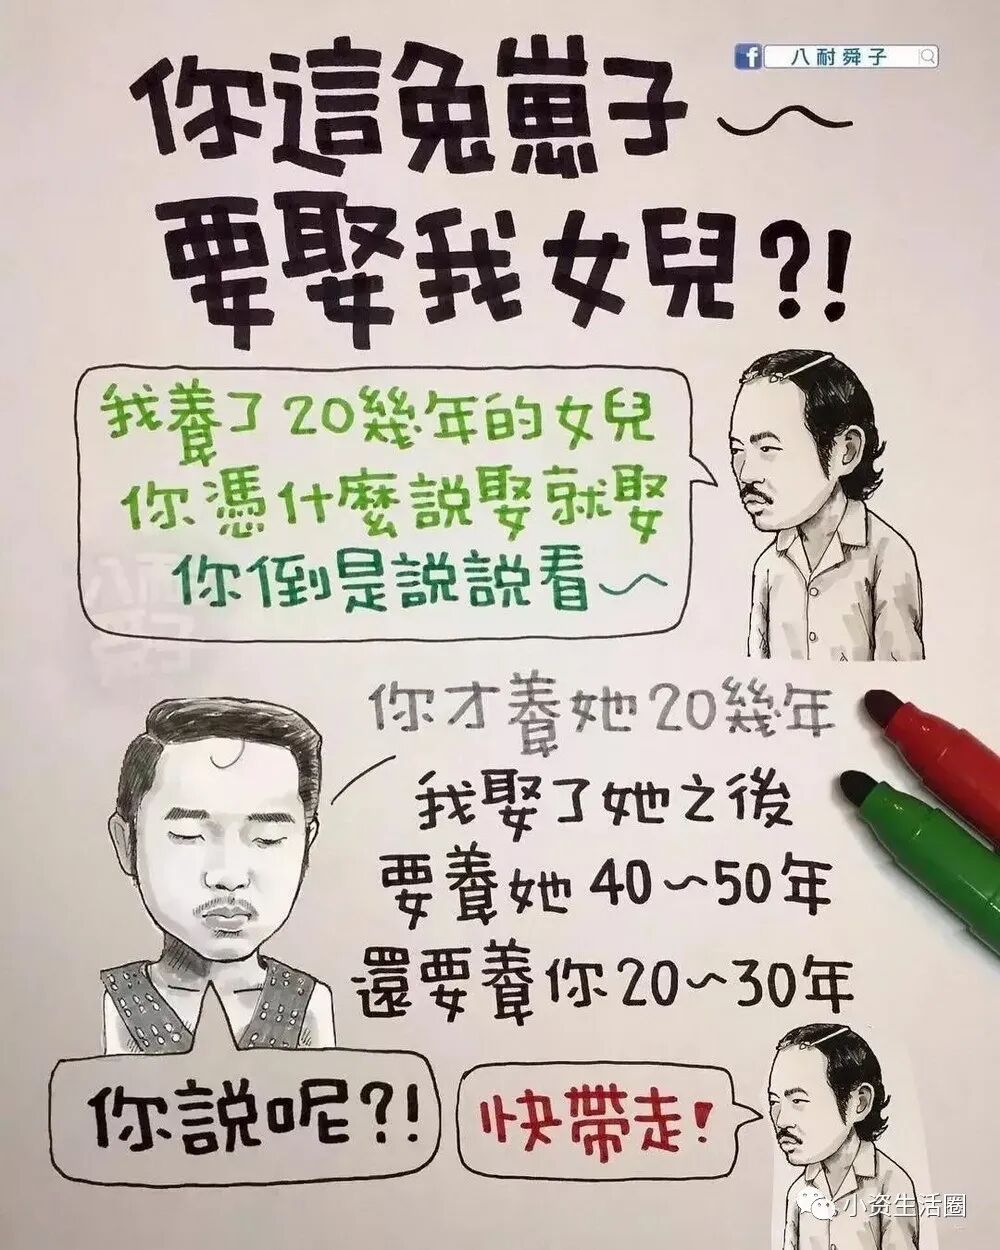 八耐舜子
你這兔崽子～
要娶我女兒?!
我養了20幾年的女兒
你憑什麼說娶就娶
你倒是說說看～
你才養她20幾年
我娶了她之後
要養她40~50年
還要養你20~30年
你說呢?!
快帶走!
小资生活圈